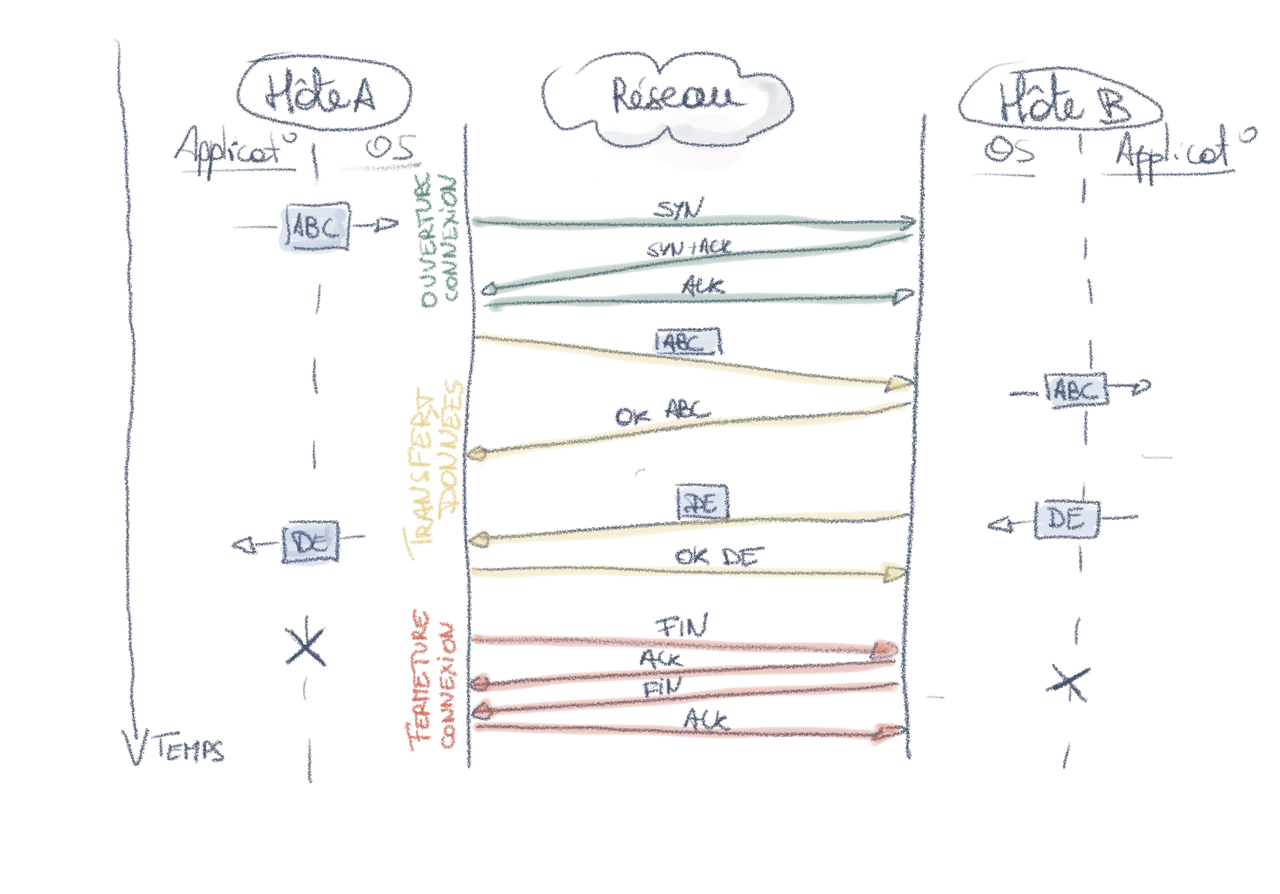 Hôte A
Réseau
Hôte B
Applicat°
OS
OS
Applicat°
OUVERTURE
CONNEXION
ABC
SYN
SYN+ACK
ACK
ABC
ABC
OK ABC
TRANSFERT
DONNÉES
DE
DE
DE
OK DE
FERMETURE
CONNEXION
FIN
ACK
FIN
ACK
TEMPS